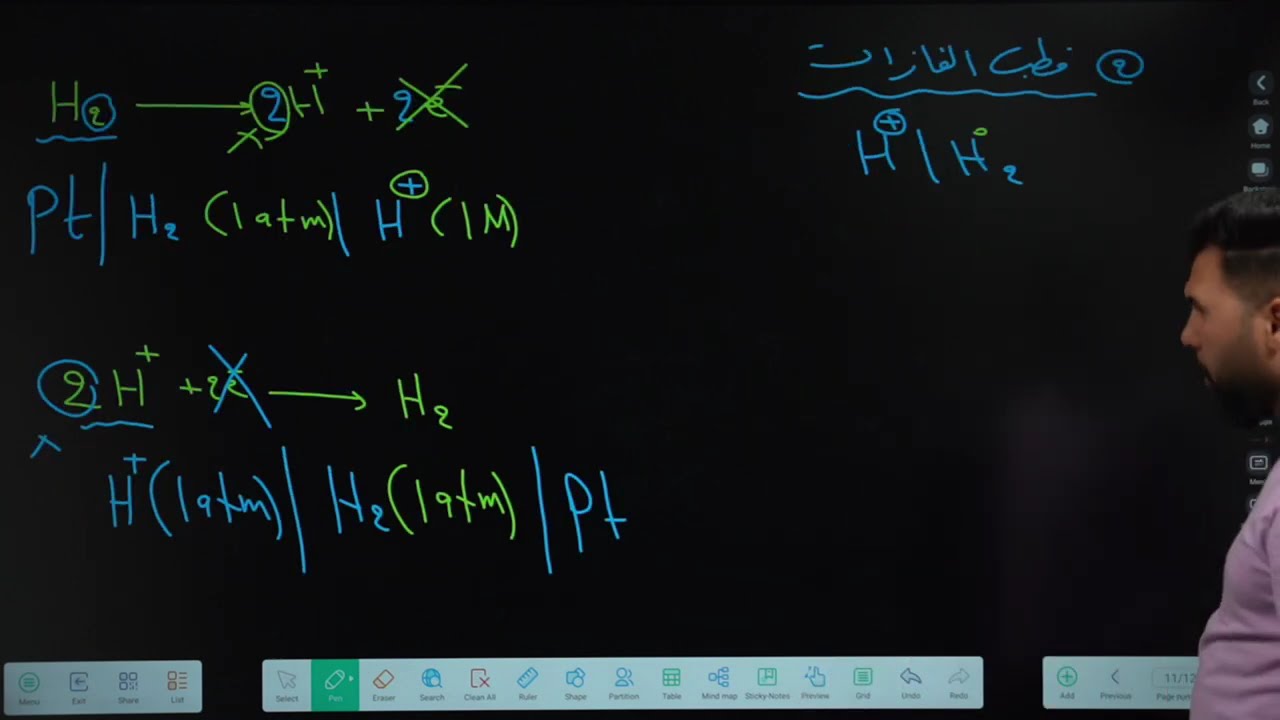 ② قطب الغازات
H⁺ | H₂°
H₂ → 2H⁺ + 2e⁻
Pt | H₂ (1 atm) | H⁺ (1M)
2H⁺ + 2e⁻ → H₂
H⁺ (1 atm) | H₂ (1 atm) | Pt
Back
Home
Menu Exit Share List
Select Pen Eraser Search Clean All Ruler Shape Partition Table Mind map Sticky-Notes Preview Grid Undo Redo
Add Previous 11/12